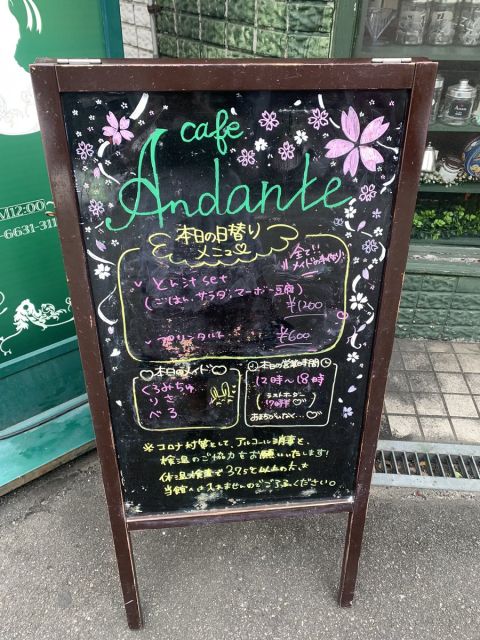 cafe
Andante
本日の日替り
メニュー
全て!!
メイドの手作り
とん汁set
(ごはん、サラダ、マーボー豆腐)
¥1200
プリンタルト
¥600
本日のメイド
くるみちゅ
りさ
べる
本日の営業時間
12時〜18時
ラストオーダー
17時半
※コロナ対策として、アルコール消毒と、
検温のご協力をお願いいたします!
体温検査で37.5℃以上の方は
当館へは入れませんのでご了承ください。
M12:00
-6631-311